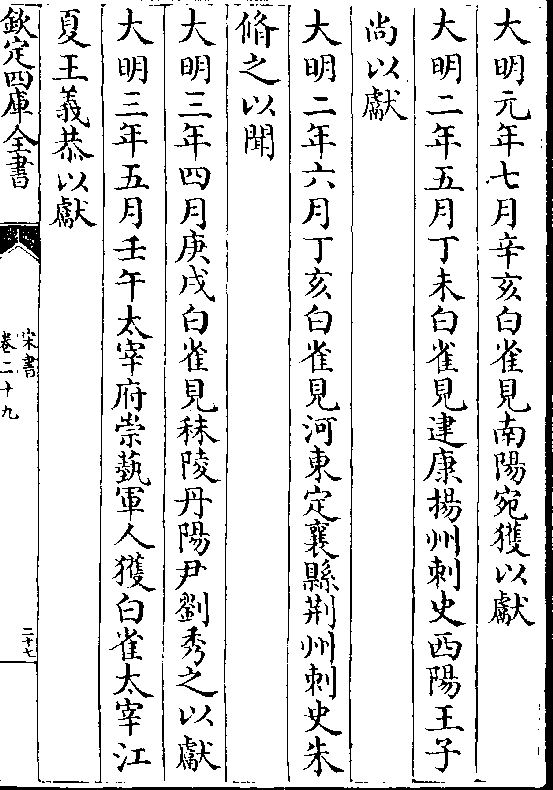 大明元年七月辛亥白雀見南陽宛獲以獻
大明二年五月丁未白雀見建康揚州刺史西陽王子
尚以獻
大明二年六月丁亥白雀見河東定襄縣荆州刺史朱
脩之以聞
大明三年四月庚戌白雀見秣陵丹陽尹劉秀之以獻
大明三年五月壬午太宰府崇藝軍人獲白雀太宰江
夏王義恭以獻
欽定四庫全書
宋書
卷二十九
二十七